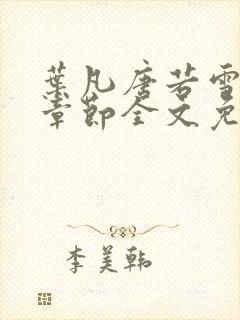 葉凡唐若雪
章節全文免
李美韩